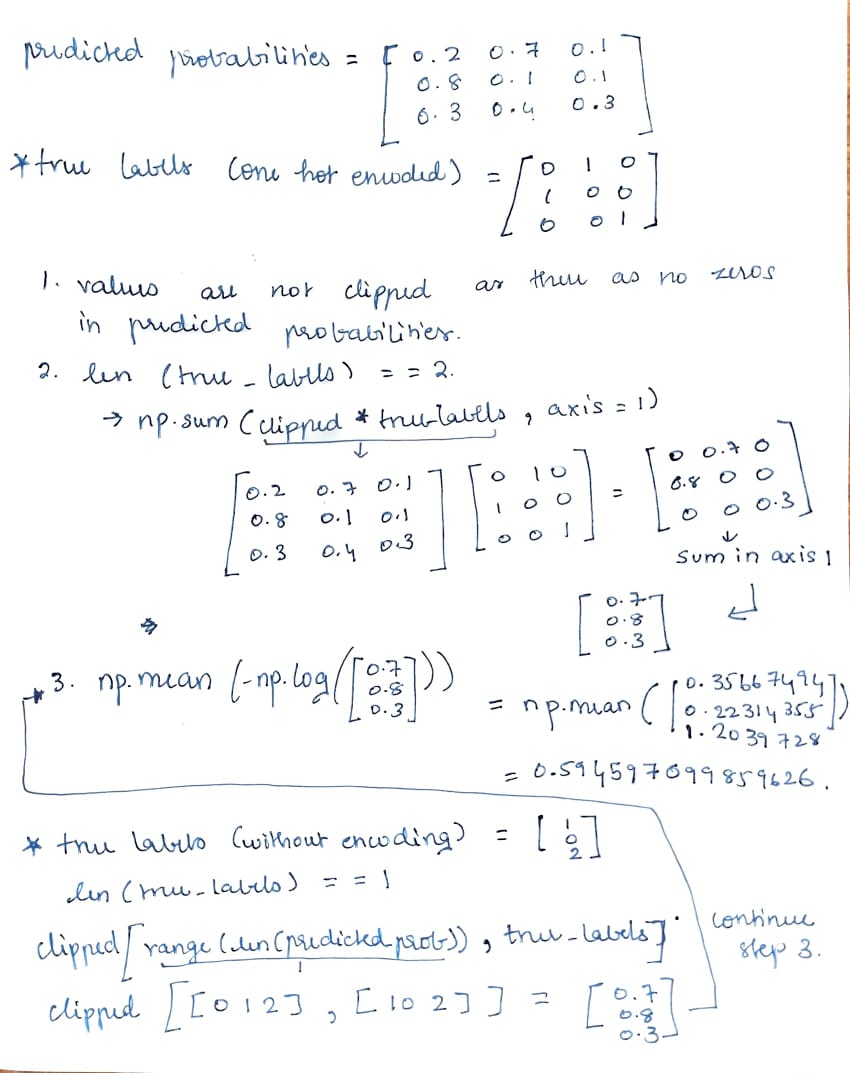 predicted probabilities = [ 0.2 0.7 0.1
0.8 0.1 0.1
0.3 0.4 0.3 ]
* true labels (one hot encoded) = [ 0 1 0
1 0 0
0 0 1 ]
1. values are not clipped as there as no zeros
in predicted probabilities.
2. len (true_labels) == 2.
→ np.sum (clipped * true_labels, axis = 1)
↓
[ 0.2 0.7 0.1 ] [ 0 1 0 ] = [ 0 0.7 0 ]
[ 0.8 0.1 0.1 ] [ 1 0 0 ] [ 0.8 0 0 ]
[ 0.3 0.4 0.3 ] [ 0 0 1 ] [ 0 0 0.3 ]
↓
sum in axis 1
[ 0.7
0.8
0.3 ]
3. np.mean (-np.log([ 0.7
0.8
0.3 ]))
= np.mean ([ 0.35667494
0.22314355
1.2039728 ])
= 0.5945977099859626.
* true labels (without encoding) = [ 1
0
2 ]
len (true_labels) == 1
clipped [range (len (predicted_prob)), true_labels].
clipped [[0 1 2], [1 0 2]] = [ 0.7
0.8
0.3 ]
continue
step 3.